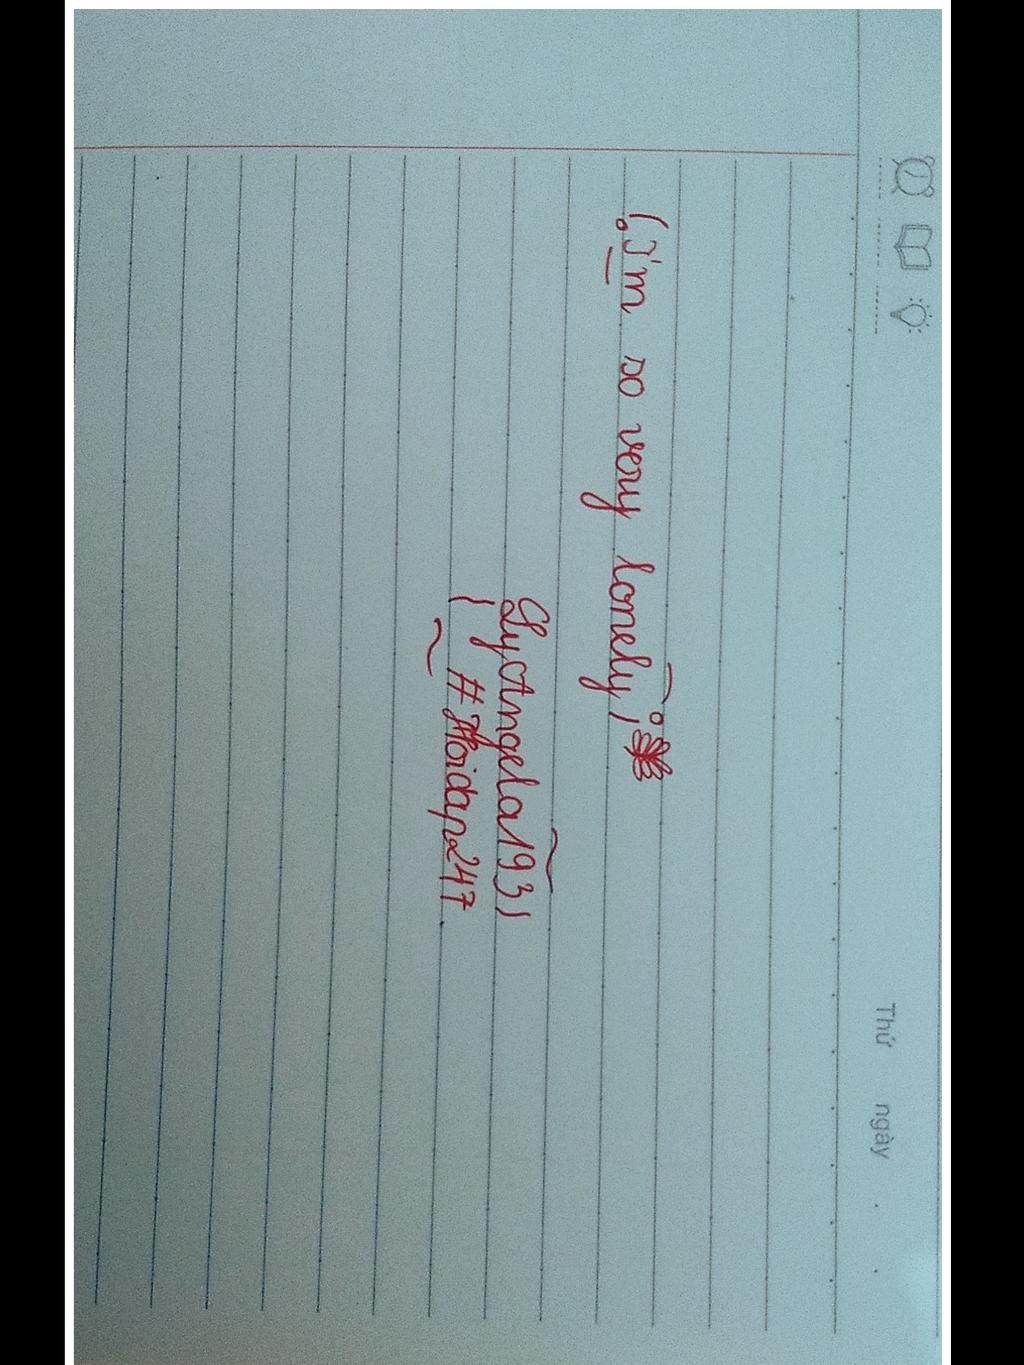 Thứ ngày
(I'm so very lonely;
LyAngela193)
{ #Hoidap247